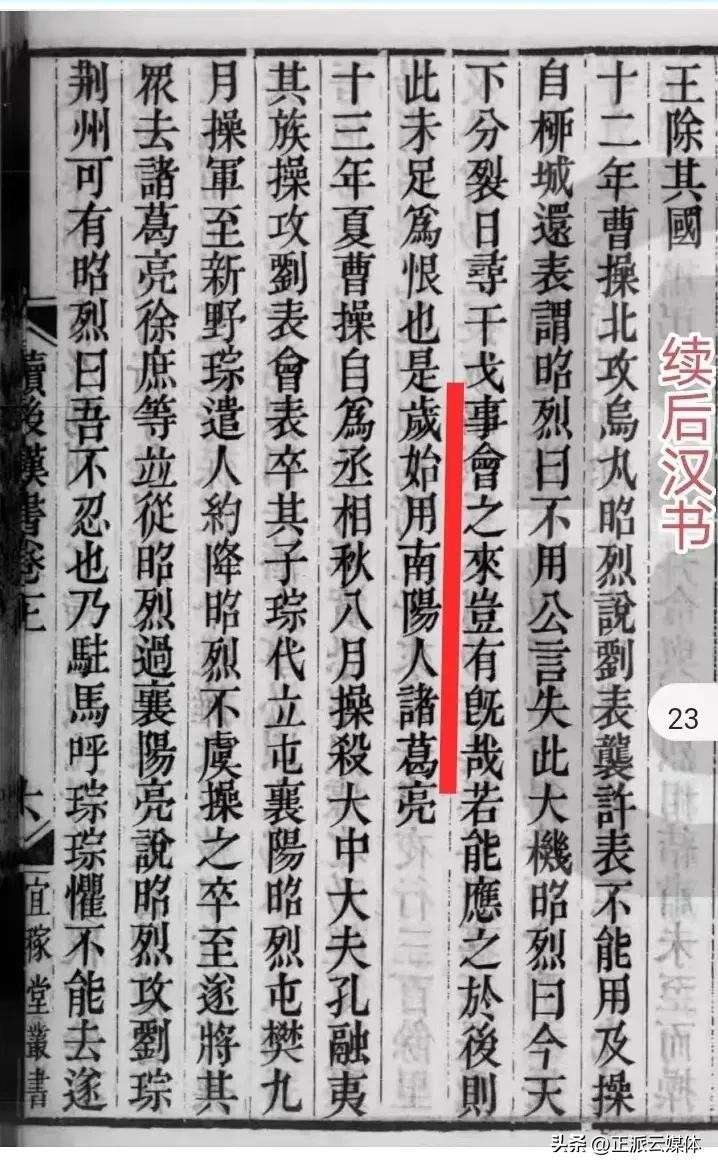 王除其國
十二年曹操北攻烏丸昭烈說劉表襲許表不能用及操
自柳城還表謂昭烈曰不用公言失此大機昭烈曰今天
下分裂日尋干戈事會之來豈有旣哉若能應之於後則
此未足爲恨也是歲始用南陽人諸葛亮
十三年夏曹操自爲丞相秋八月操殺大中大夫孔融夷
其族操攻劉表會表卒其子琮代立屯襄陽昭烈屯樊九
月操軍至新野琮遣人約降昭烈不虞操之卒至遂將其
眾去諸葛亮徐庶等並從昭烈過襄陽亮說昭烈攻劉琮
荆州可有昭烈曰吾不忍也乃駐馬呼琮琮懼不能去遂
續後漢書卷三
六
宜稼堂叢書
续后汉书
23
头条 @正派云媒体